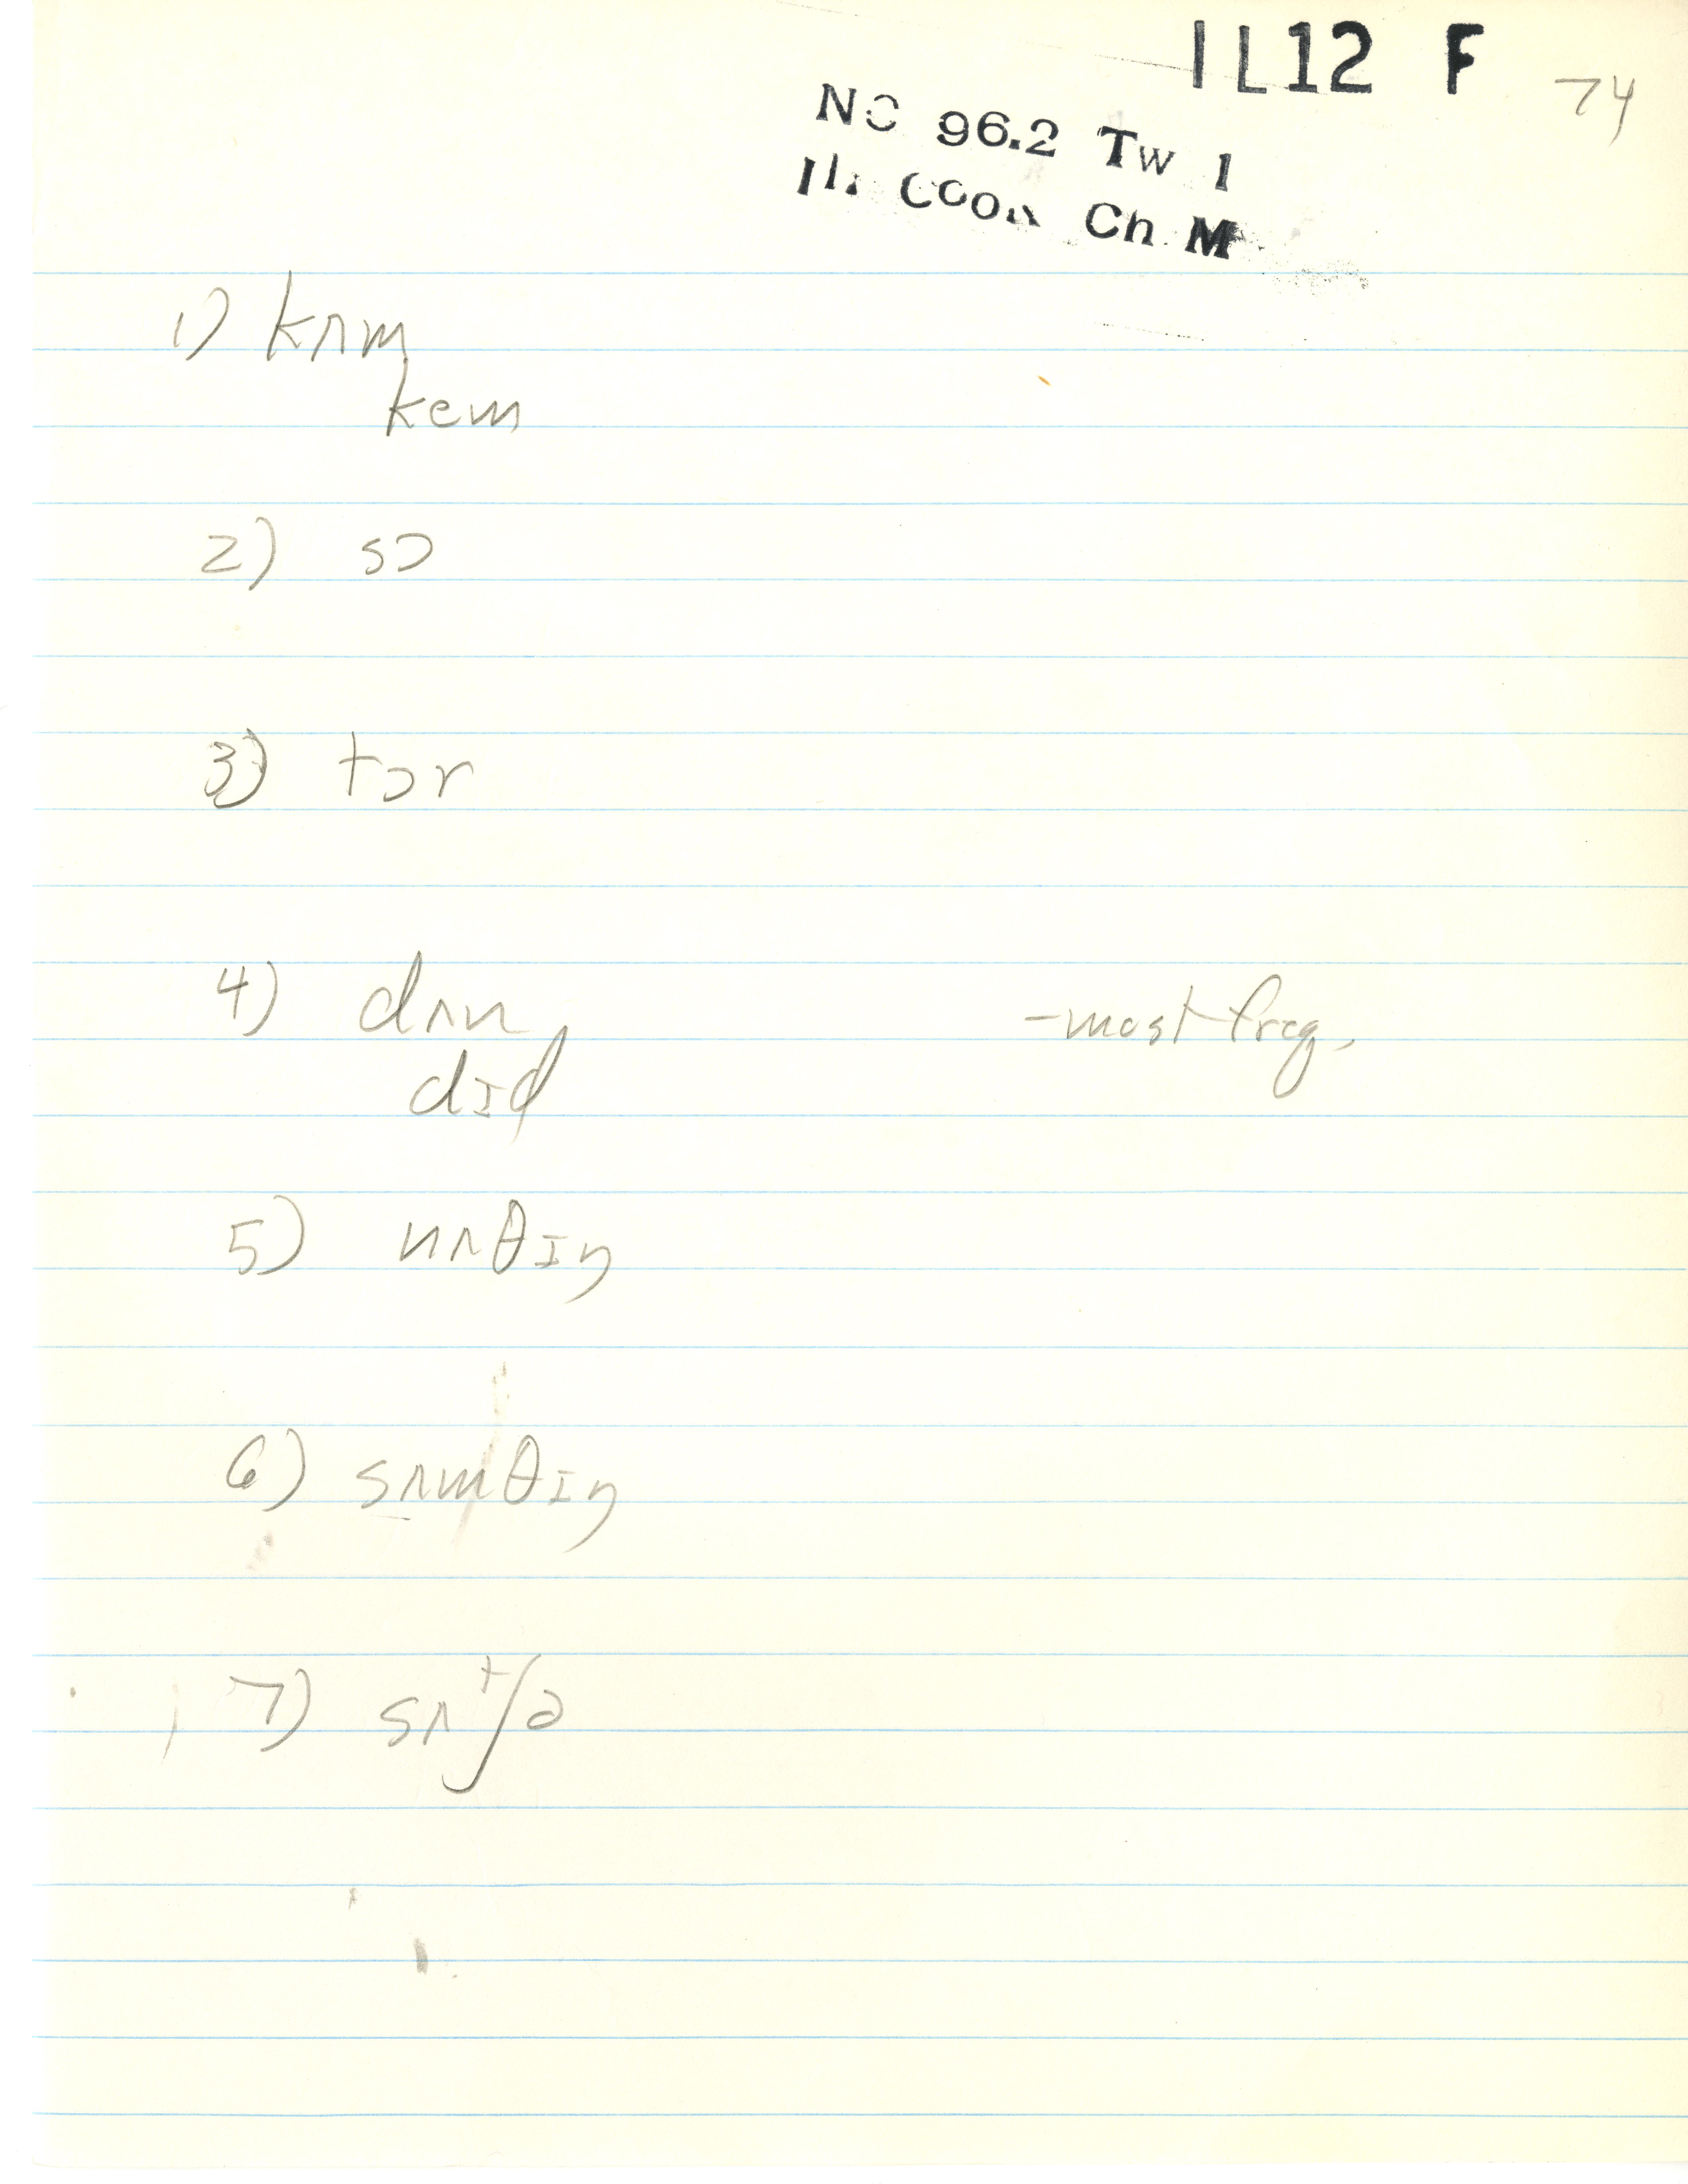 IL12 F 74
NC 96.2 Tw 1
Ill. Cook Ch. M
1) kʌm
kem
2) sɔ
3) tɔr
4) dʌn -most freq.
dɪd
5) nʌθɪŋ
6) sʌmθɪŋ
7) sʌtʃə